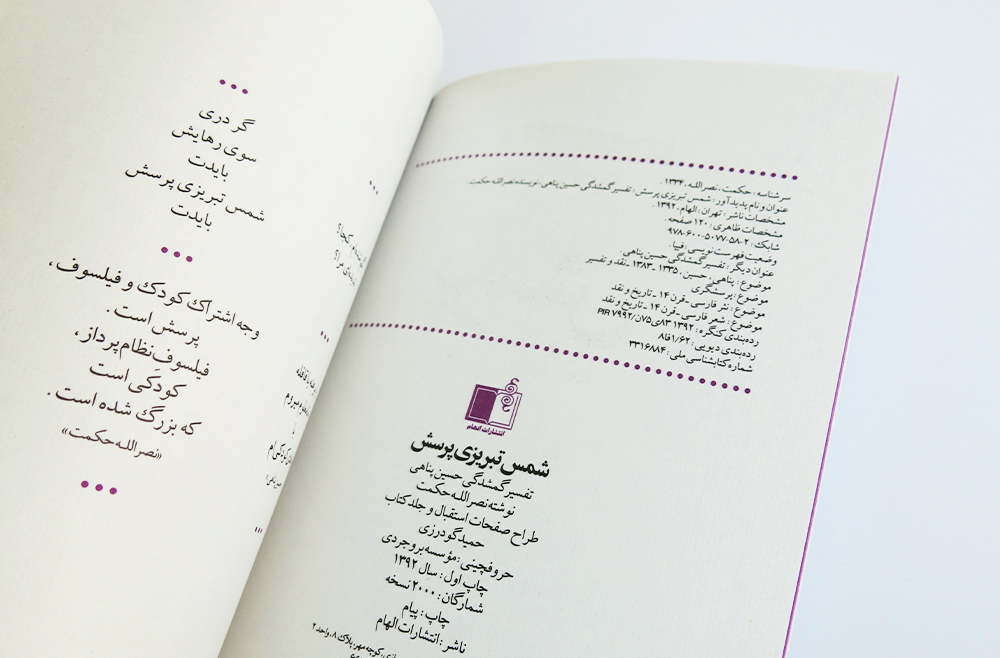 سرشناسه : حکمت، نصرالله، ۱۳۳۴.
عنوان و نام پدیدآور : شمس تبریزی پرسش : تفسیر گمشدگی حسین پناهی، نویسنده نصرالله حکمت.
مشخصات ناشر : تهران : الهام، ۱۳۹۲.
مشخصات ظاهری : ۱۲۰ صفحه.
شابک : ۲-۵۸-۵۰۷۷-۶۰۰-۹۷۸
وضعیت فهرست نویسی : فیپا.
عنوان دیگر : تفسیر گمشدگی حسین پناهی.
موضوع : پناهی، حسین، ۱۳۳۵ ـ ۱۳۸۳ ـ نقد و تفسیر
موضوع : پرسشگری
موضوع : نثر فارسی ـ قرن ۱۴ ـ تاریخ و نقد
موضوع : شعر فارسی ـ قرن ۱۴ ـ تاریخ و نقد
رده‌بندی کنگره : ۱۳۹۲ ۸۳ی۷۵ن/PIR ۷۹۹۲
رده‌بندی دیویی : ۱/۶۲فا۸
شماره کتابشناسی ملی : ۳۳۱۶۸۸۴
انتشارات الهام
شمس تبریزی پرسش
تفسیر گمشدگی حسین پناهی
نوشته نصرالله حکمت
طراح صفحات استقبال و جلد کتاب
حمید گودرزی
حروفچینی : مؤسسه بروجردی
چاپ اول : سال ۱۳۹۲
شمارگان : ۲۰۰۰ نسخه
چاپ : پیام
ناشر : انتشارات الهام
کوچه مهر، پلاک ۸، واحد ۲
گر دری
سوی رهایش
بایدت
شمس تبریزی پرسش
بایدت
وجه اشتراك کودك و فیلسوف،
پرسش است.
فیلسوفِ نظام‌پرداز،
کودکی است
که بزرگ شده است.
«نصرالله حکمت»